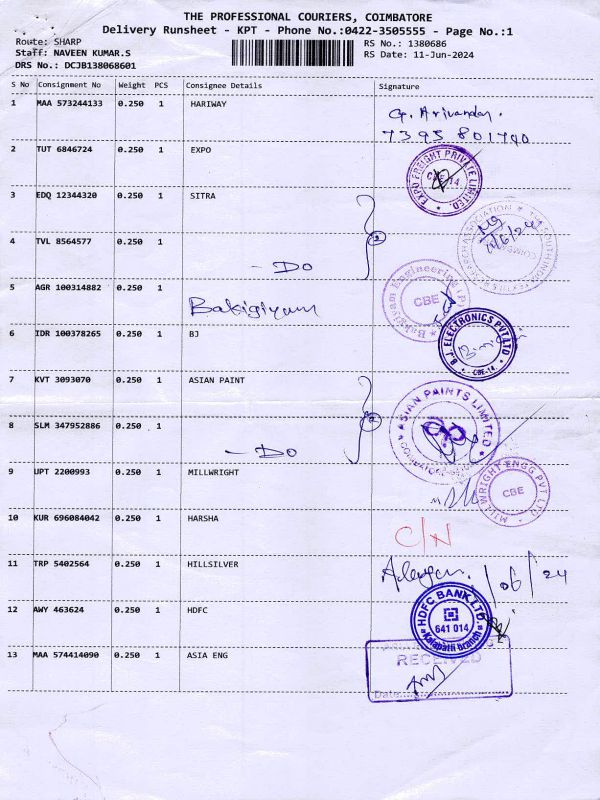 THE PROFESSIONAL COURIERS, COIMBATORE
Delivery Runsheet - KPT - Phone No.:0422-3505555 - Page No.:1
Route: SHARP
RS No.: 1380686
Staff: NAVEEN KUMAR.S
RS Date: 11-Jun-2024
DRS No.: DCJB138068601
S No Consignment No Weight PCS Consignee Details Signature
1 MAA 573244133 0.250 1 HARIWAY
7395 801740
2 TUT 6846724 0.250 1 EXPO
EXPO FREIGHT PRIVATE LIMITED.
CBE-14
3 EDQ 12344320 0.250 1 SITRA
4 TVL 8564577 0.250 1
- DO
2
11/6/24
5 AGR 100314882 0.250 1
Bakigiyam
Engineering (P)
CBE
6 IDR 100378265 0.250 1 BJ
B.J. ELECTRONICS PVT LTD
CBE-14
7 KVT 3093070 0.250 1 ASIAN PAINT
ASIAN PAINTS LIMITED
8 SLM 347952886 0.250 1
- DO
2
9 UPT 2200993 0.250 1 MILLWRIGHT
MILLWRIGHT ENGG PVT LTD
CBE
10 KUR 696084042 0.250 1 HARSHA
C/N
11 TRP 5402564 0.250 1 HILLSILVER
/06/24
12 AWY 463624 0.250 1 HDFC
HDFC BANK LTD.
641 014
Kalapatti Branch
13 MAA 574414090 0.250 1 ASIA ENG
RECEIVED
Date